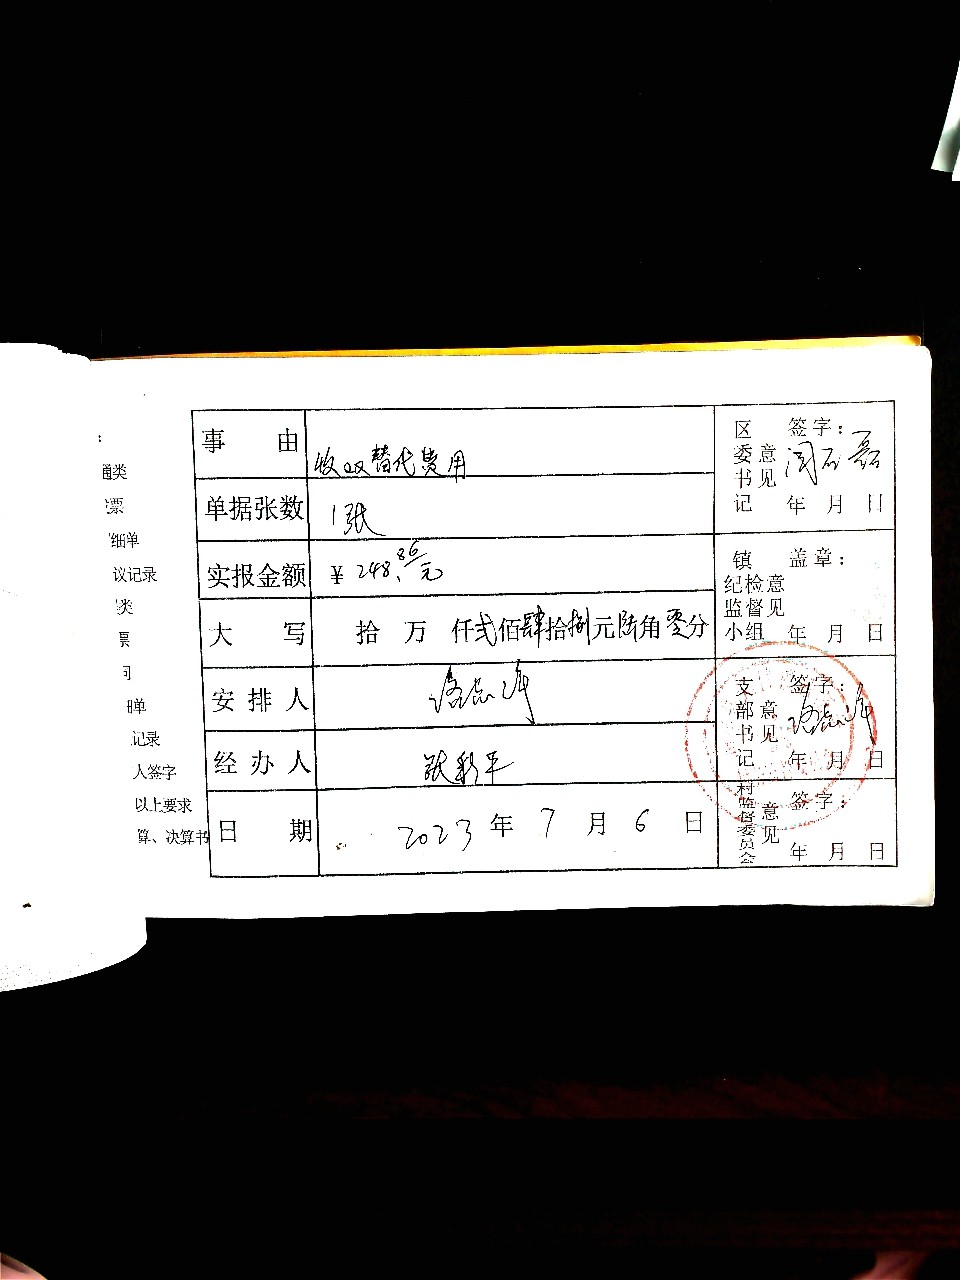 ：
通类
票
细单
议记录
类
票
司
单
记录
人签字
以上要求
算、决算书
事由
收双替代费用
单据张数
1张
实报金额
￥248.86元
大写
拾 万 仟弍佰肆拾捌元陆角零分
安排人
经办人
张彩平
日期
2023年7月6日
区委书记意见
签字：
年 月 日
镇纪检监督小组意见
盖章：
年 月 日
支部书记意见
签字：
年 月 日
村监督委员会意见
签字：
年 月 日